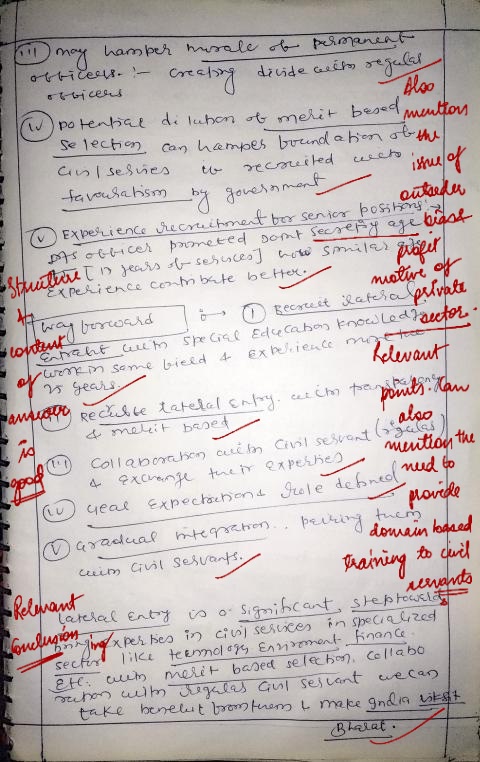 iii) may hamper morale of permanent
officers. :- creating divide with regular
officers
iv) potential dilution of merit based
selection can hamper foundation of
civil servies is recruited with
favouratism by government
v) Experience recruitment for senior positions :-
officer promoted Joint Secretry age
[17 years of services] similar age
experience contribute better.
Also
mention
the
issue of
outsider
bias &
profit
motive of
private
sector.
Structure
&
content
of
answer
is
good
way forward :→ (i) Recruit lateral
Entraint with special Education knowledge
work in same field & experience
25 years.
ii) Lateral Entry. with transparency
& merit based
iii) Collaboration with civil servant (regular)
& exchange their experties
iv) Expectation & role defined
v) Gradual integration.. pairing them
with civil servants.
Relevant
points. Can
also
mention the
need to
provide
domain based
training to civil
servants
Relevant
Conclusion
lateral Entry is a significant step towards
bringing experties in civil services in specialized
sector like technology Enviroment, finance.
ETC. with merit based selection, collabo
ration with regular civil servant we can
take benefit from them & make India
Bharat.